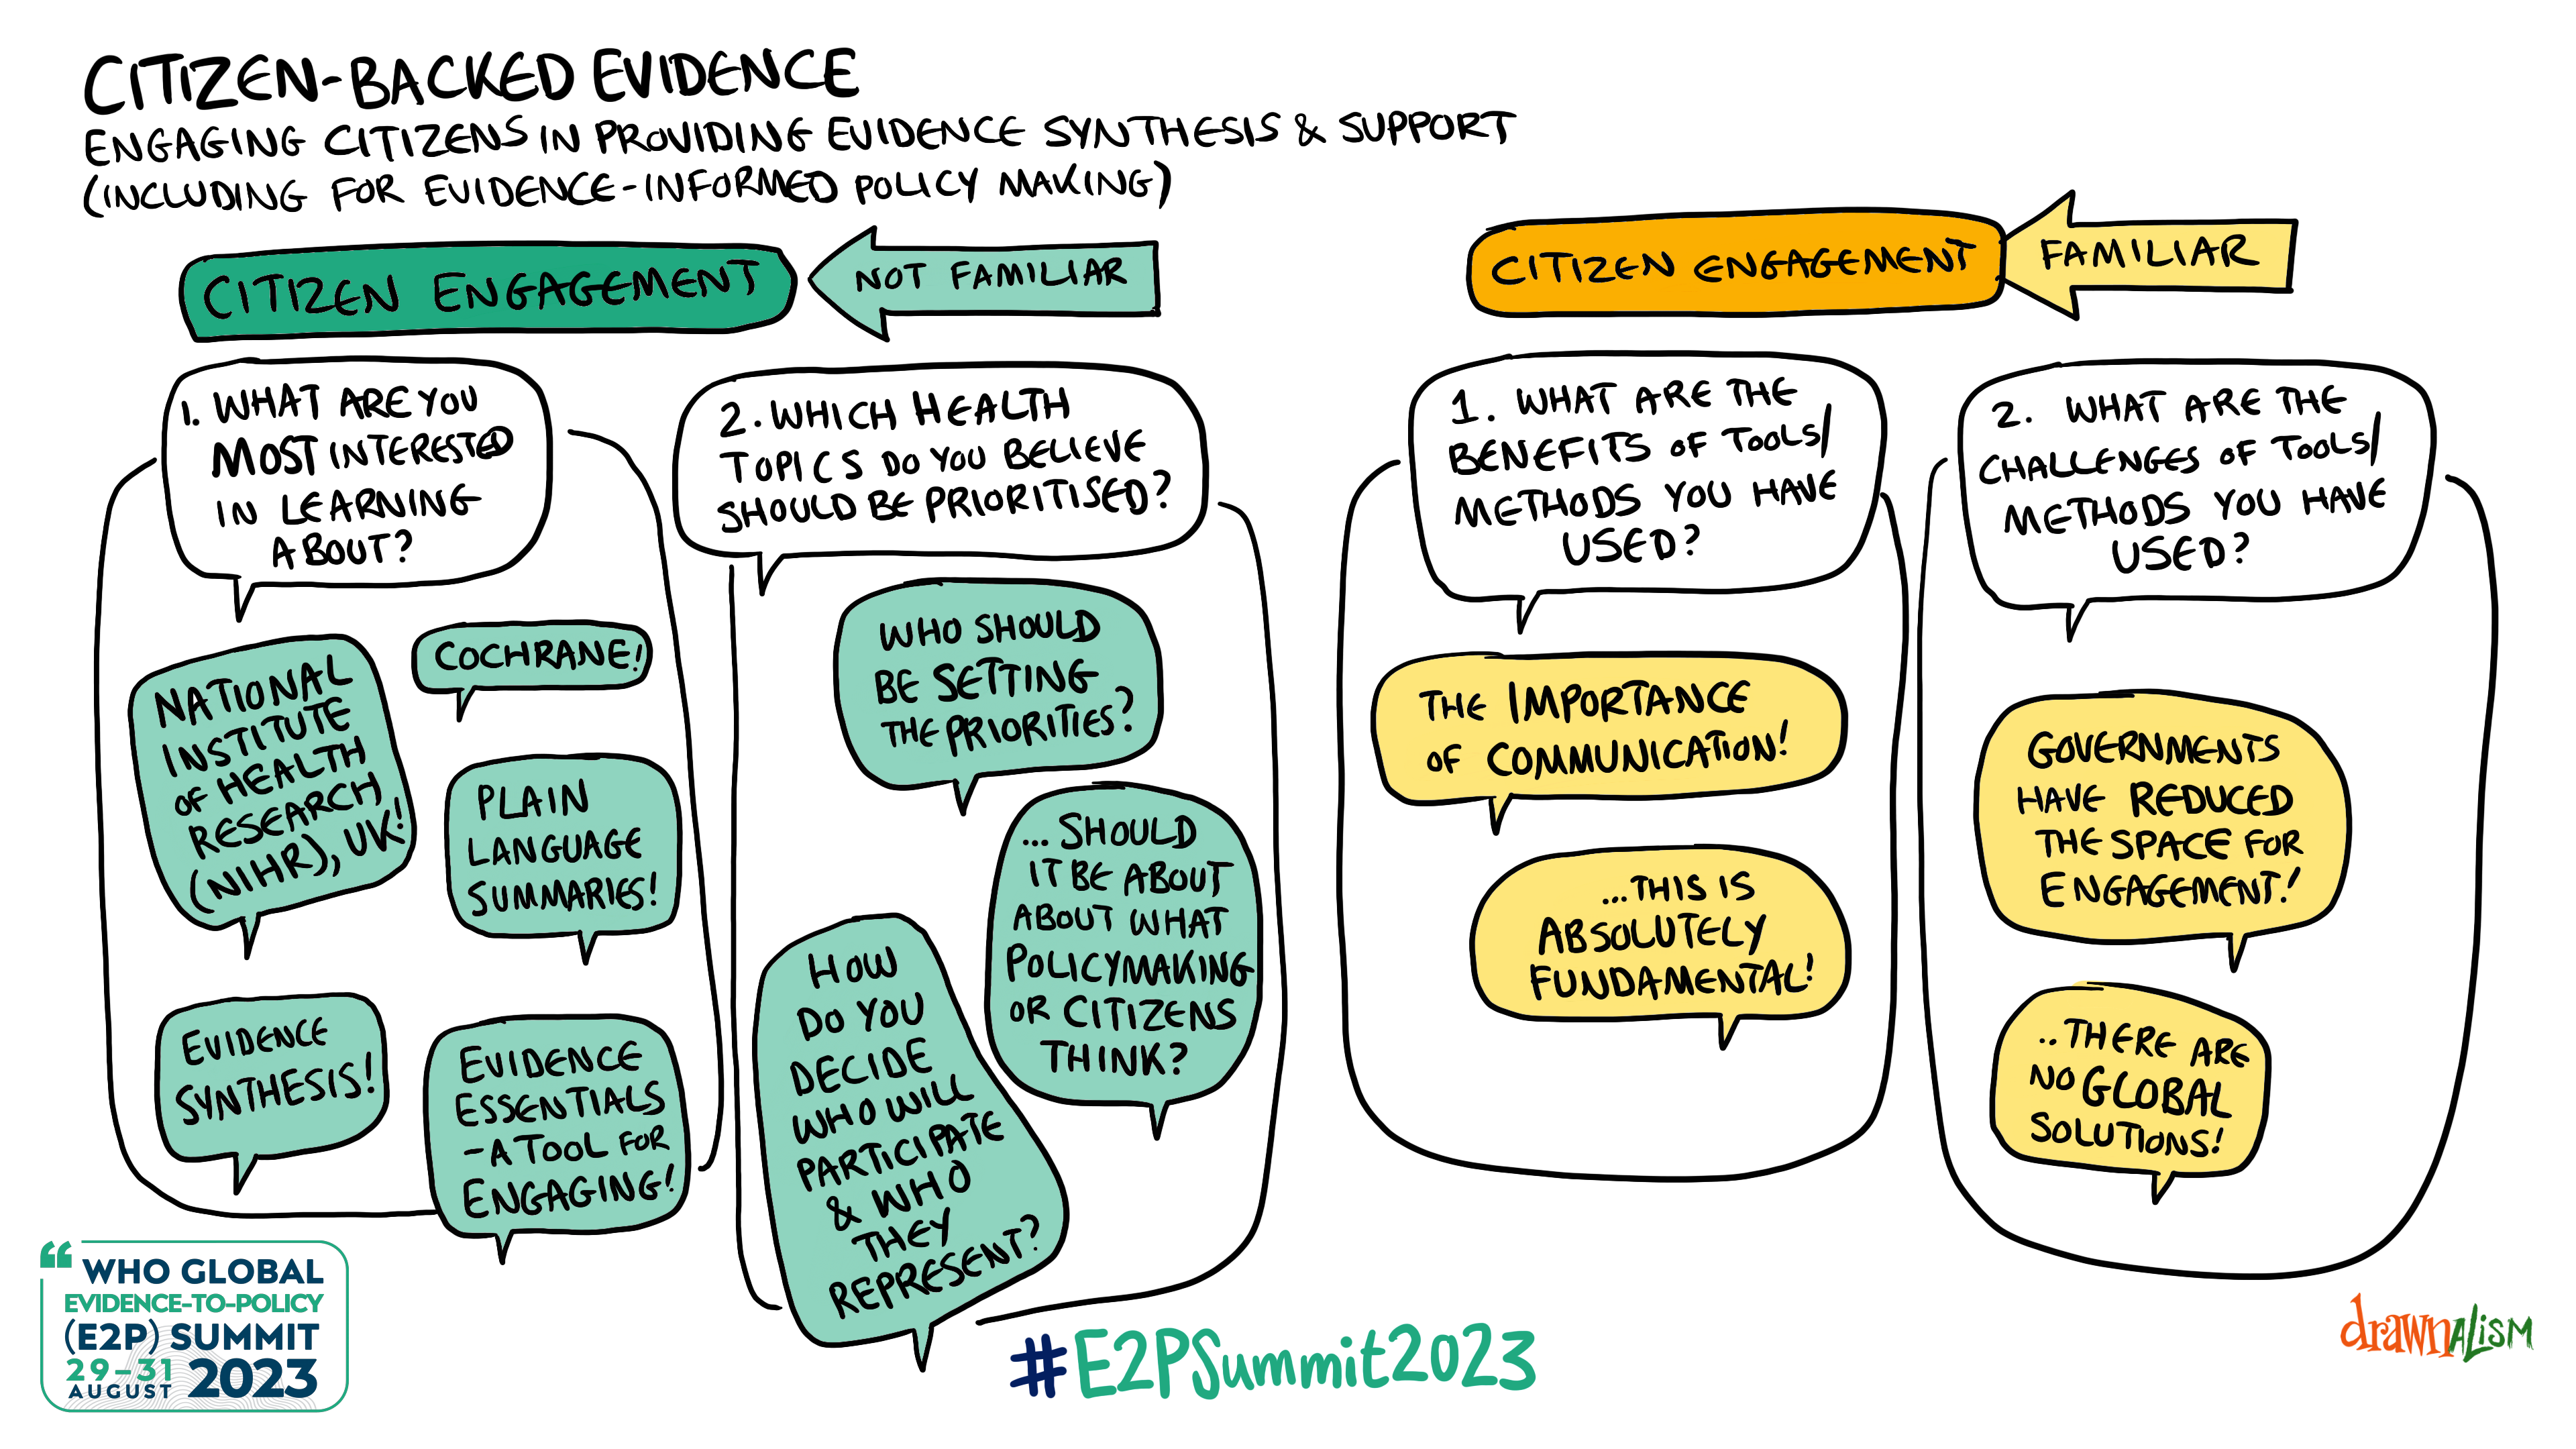 CITIZEN-BACKED EVIDENCE
ENGAGING CITIZENS IN PROVIDING EVIDENCE SYNTHESIS & SUPPORT
(INCLUDING FOR EVIDENCE-INFORMED POLICY MAKING)
CITIZEN ENGAGEMENT
NOT FAMILIAR
1. WHAT ARE YOU
MOST INTERESTED
IN LEARNING
ABOUT?
NATIONAL
INSTITUTE
OF HEALTH
RESEARCH
(NIHR), UK!
COCHRANE!
PLAIN
LANGUAGE
SUMMARIES!
EVIDENCE
SYNTHESIS!
EVIDENCE
ESSENTIALS
-A TOOL FOR
ENGAGING!
2. WHICH HEALTH
TOPICS DO YOU BELIEVE
SHOULD BE PRIORITISED?
WHO SHOULD
BE SETTING
THE PRIORITIES?
...SHOULD
IT BE ABOUT
ABOUT WHAT
POLICYMAKING
OR CITIZENS
THINK?
HOW
DO YOU
DECIDE
WHO WILL
PARTICIPATE
& WHO
THEY
REPRESENT?
CITIZEN ENGAGEMENT
FAMILIAR
1. WHAT ARE THE
BENEFITS OF TOOLS/
METHODS YOU HAVE
USED?
THE IMPORTANCE
OF COMMUNICATION!
...THIS IS
ABSOLUTELY
FUNDAMENTAL!
2. WHAT ARE THE
CHALLENGES OF TOOLS/
METHODS YOU HAVE
USED?
GOVERNMENTS
HAVE REDUCED
THE SPACE FOR
ENGAGEMENT!
..THERE ARE
NO GLOBAL
SOLUTIONS!
“ WHO GLOBAL
EVIDENCE-TO-POLICY
(E2P) SUMMIT
29–31
AUGUST 2023
#E2PSummit2023
drawnALISM